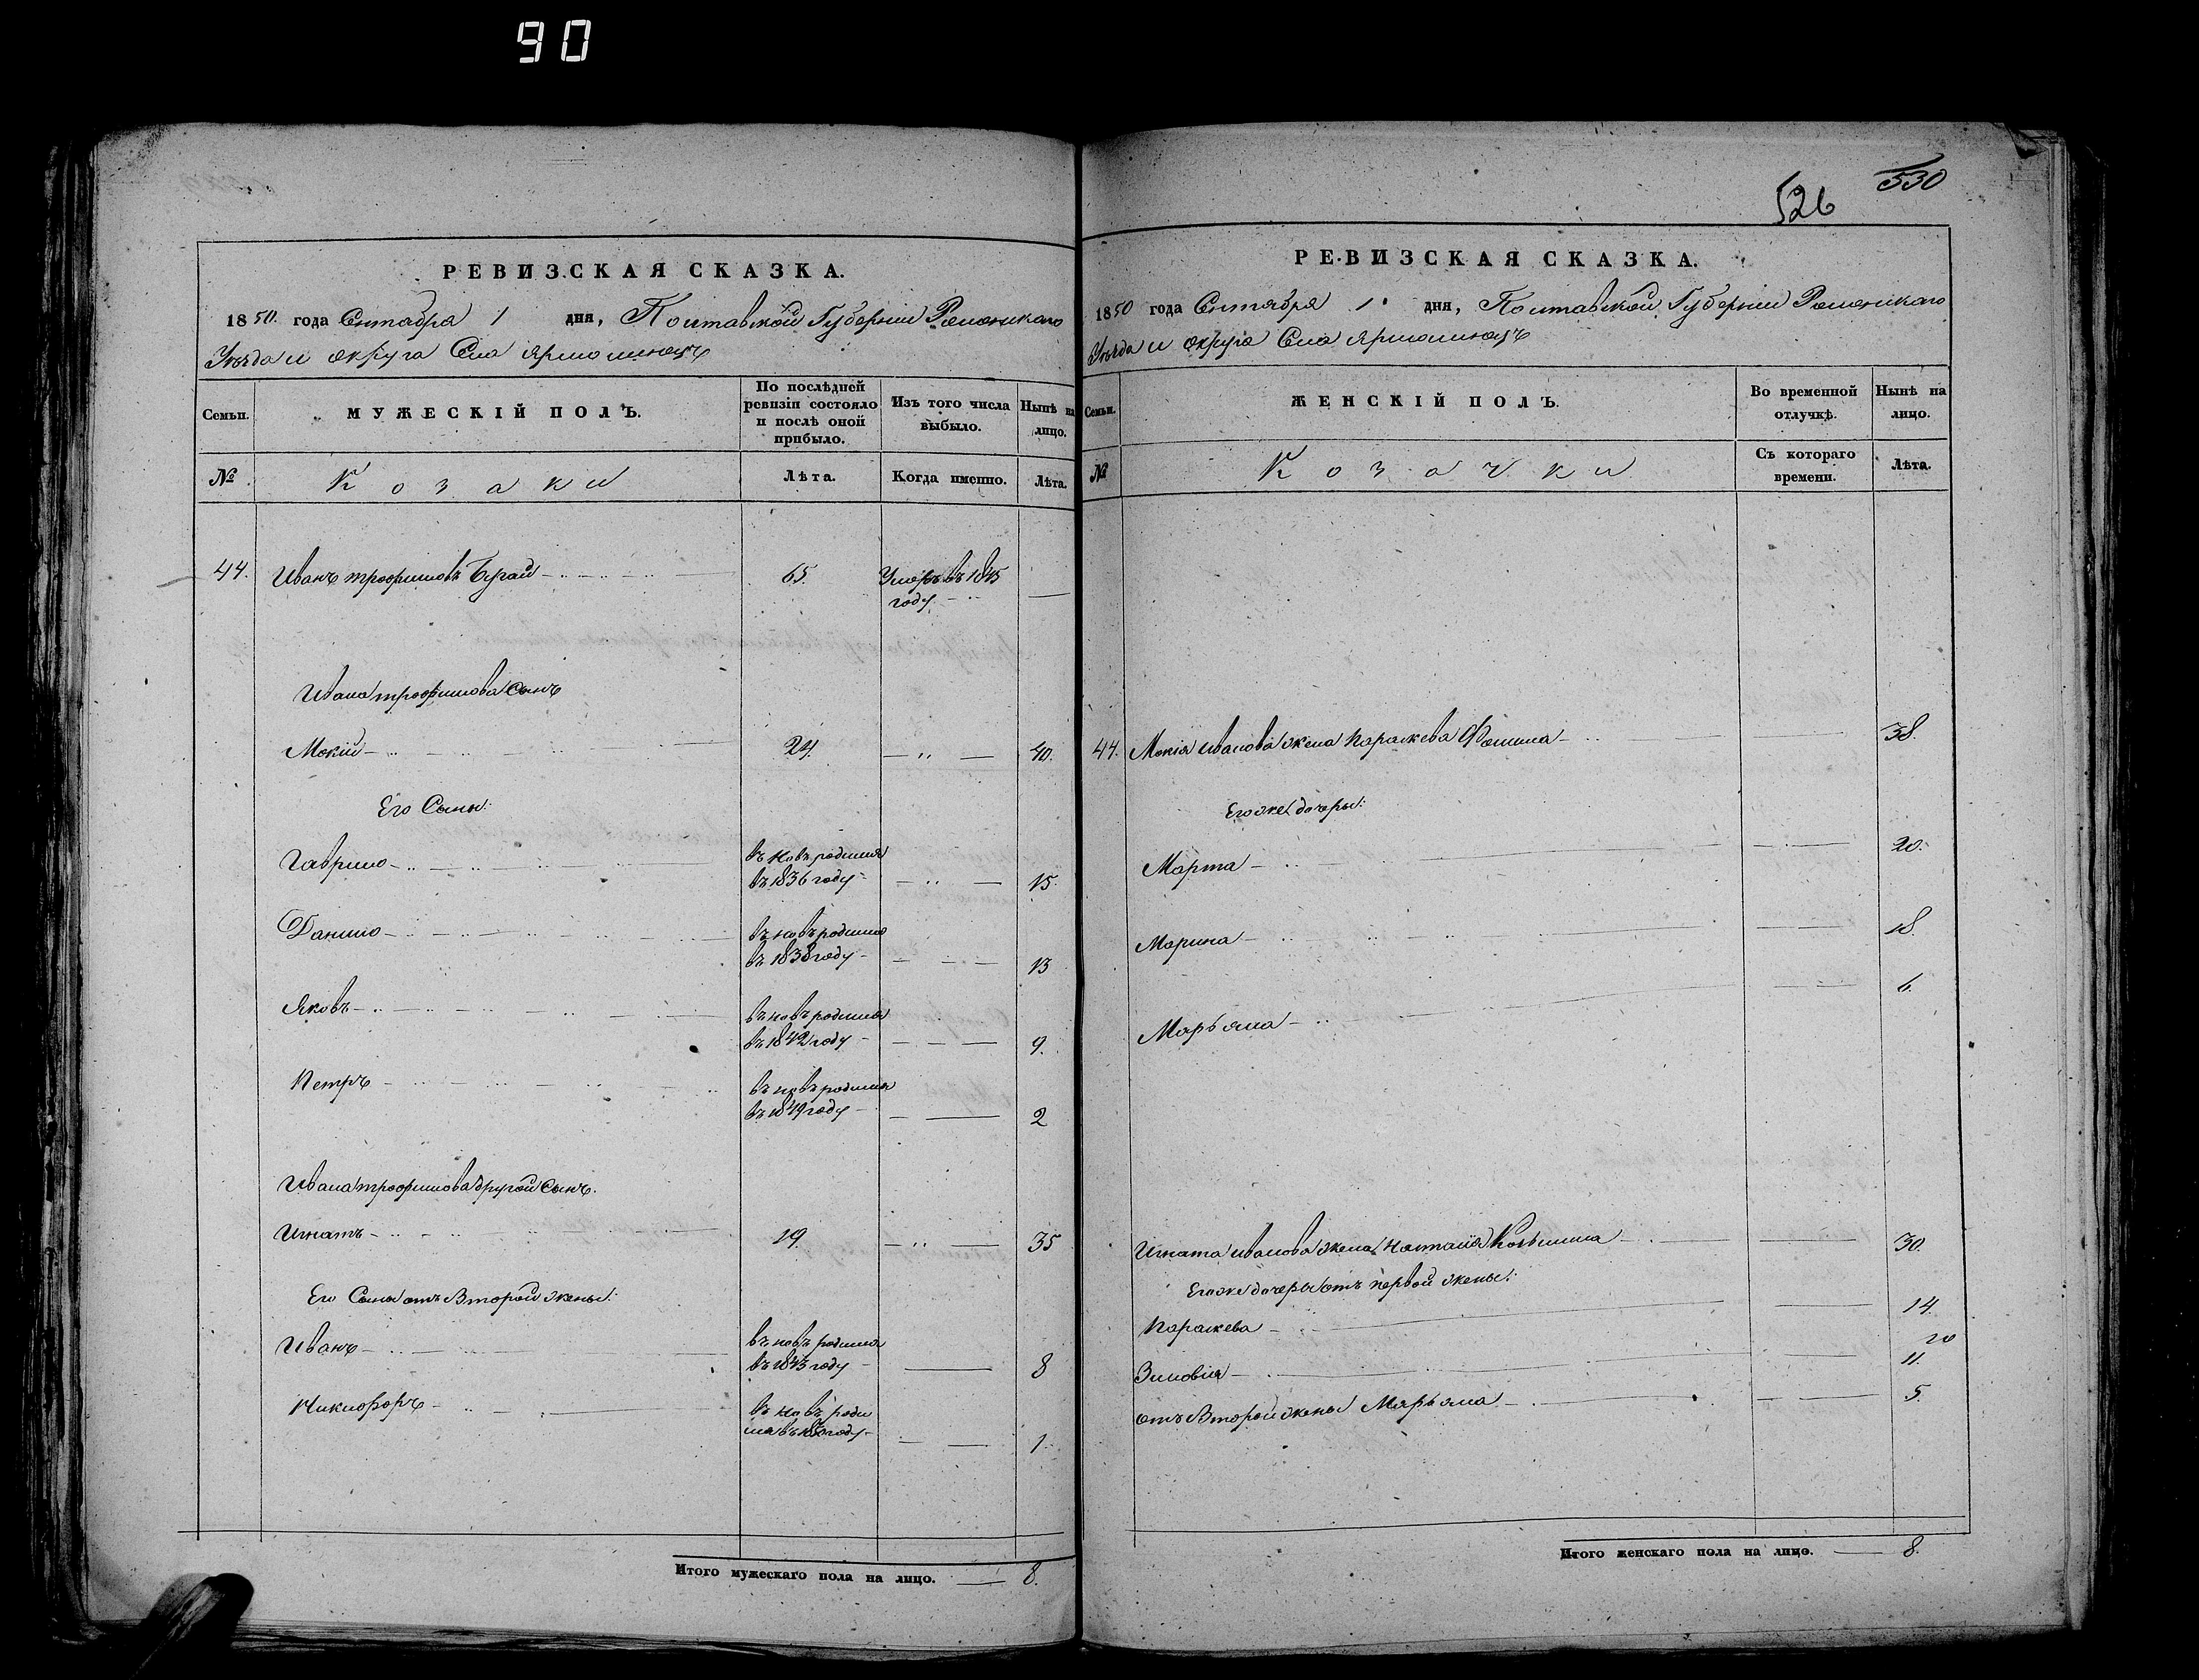 90
РЕВИЗСКАЯ СКАЗКА.
1850. года Сентября 1 дня, Полтавской Губернии Роменскаго
Уѣзда и округа Села Ярмолинецъ
Семьи.
МУЖЕСКІЙ ПОЛЪ.
По послѣдней ревизіи состояло и послѣ оной прибыло.
Изъ того числа выбыло.
Нынѣ на лицо.
№
Козаки
Лѣта.
Когда именно.
Лѣта.
44. Иванъ Трофимовъ Бугай 65. Умеръ въ 1845
году
Ивана Трофимова Сынъ
Мокій 24. 40.
Его Сыны:
Гаврило въ новь родился
въ 1836 году 15.
Данило въ новь родился
въ 1838 году 13
Яковъ въ новь родился
въ 1842 году 9.
Петръ въ новь родился
въ 1849 году 2
Ивана Трофимова другой Сынъ.
Игнатъ 19. 35
Его Сыны отъ Второй жены:
Иванъ въ новь родился
въ 1843 году 8
Никифоръ въ новь роди
лся въ 1850 году 1
Итого мужескаго пола на лицо. 8.
530
526
РЕВИЗСКАЯ СКАЗКА.
1850 года Сентября 1 дня, Полтавской Губернии Роменскаго
Уѣзда и округа Села Ярмолинецъ
Семьи.
ЖЕНСКІЙ ПОЛЪ.
Во временной отлучкѣ.
Нынѣ на лицо.
№
Козачки
Съ котораго времени.
Лѣта.
44. Мокія Иванова жена Параскева Фомина 38.
Его же дочеры:
Марта 20.
Марина 18.
Марьяна 6.
Игната Иванова жена 30.
Его же дочеры отъ первой жены:
Параскева 14.
20
Зиновія 11.
отъ Второй жены Марьяна 5.
Итого женскаго пола на лицо. 8.